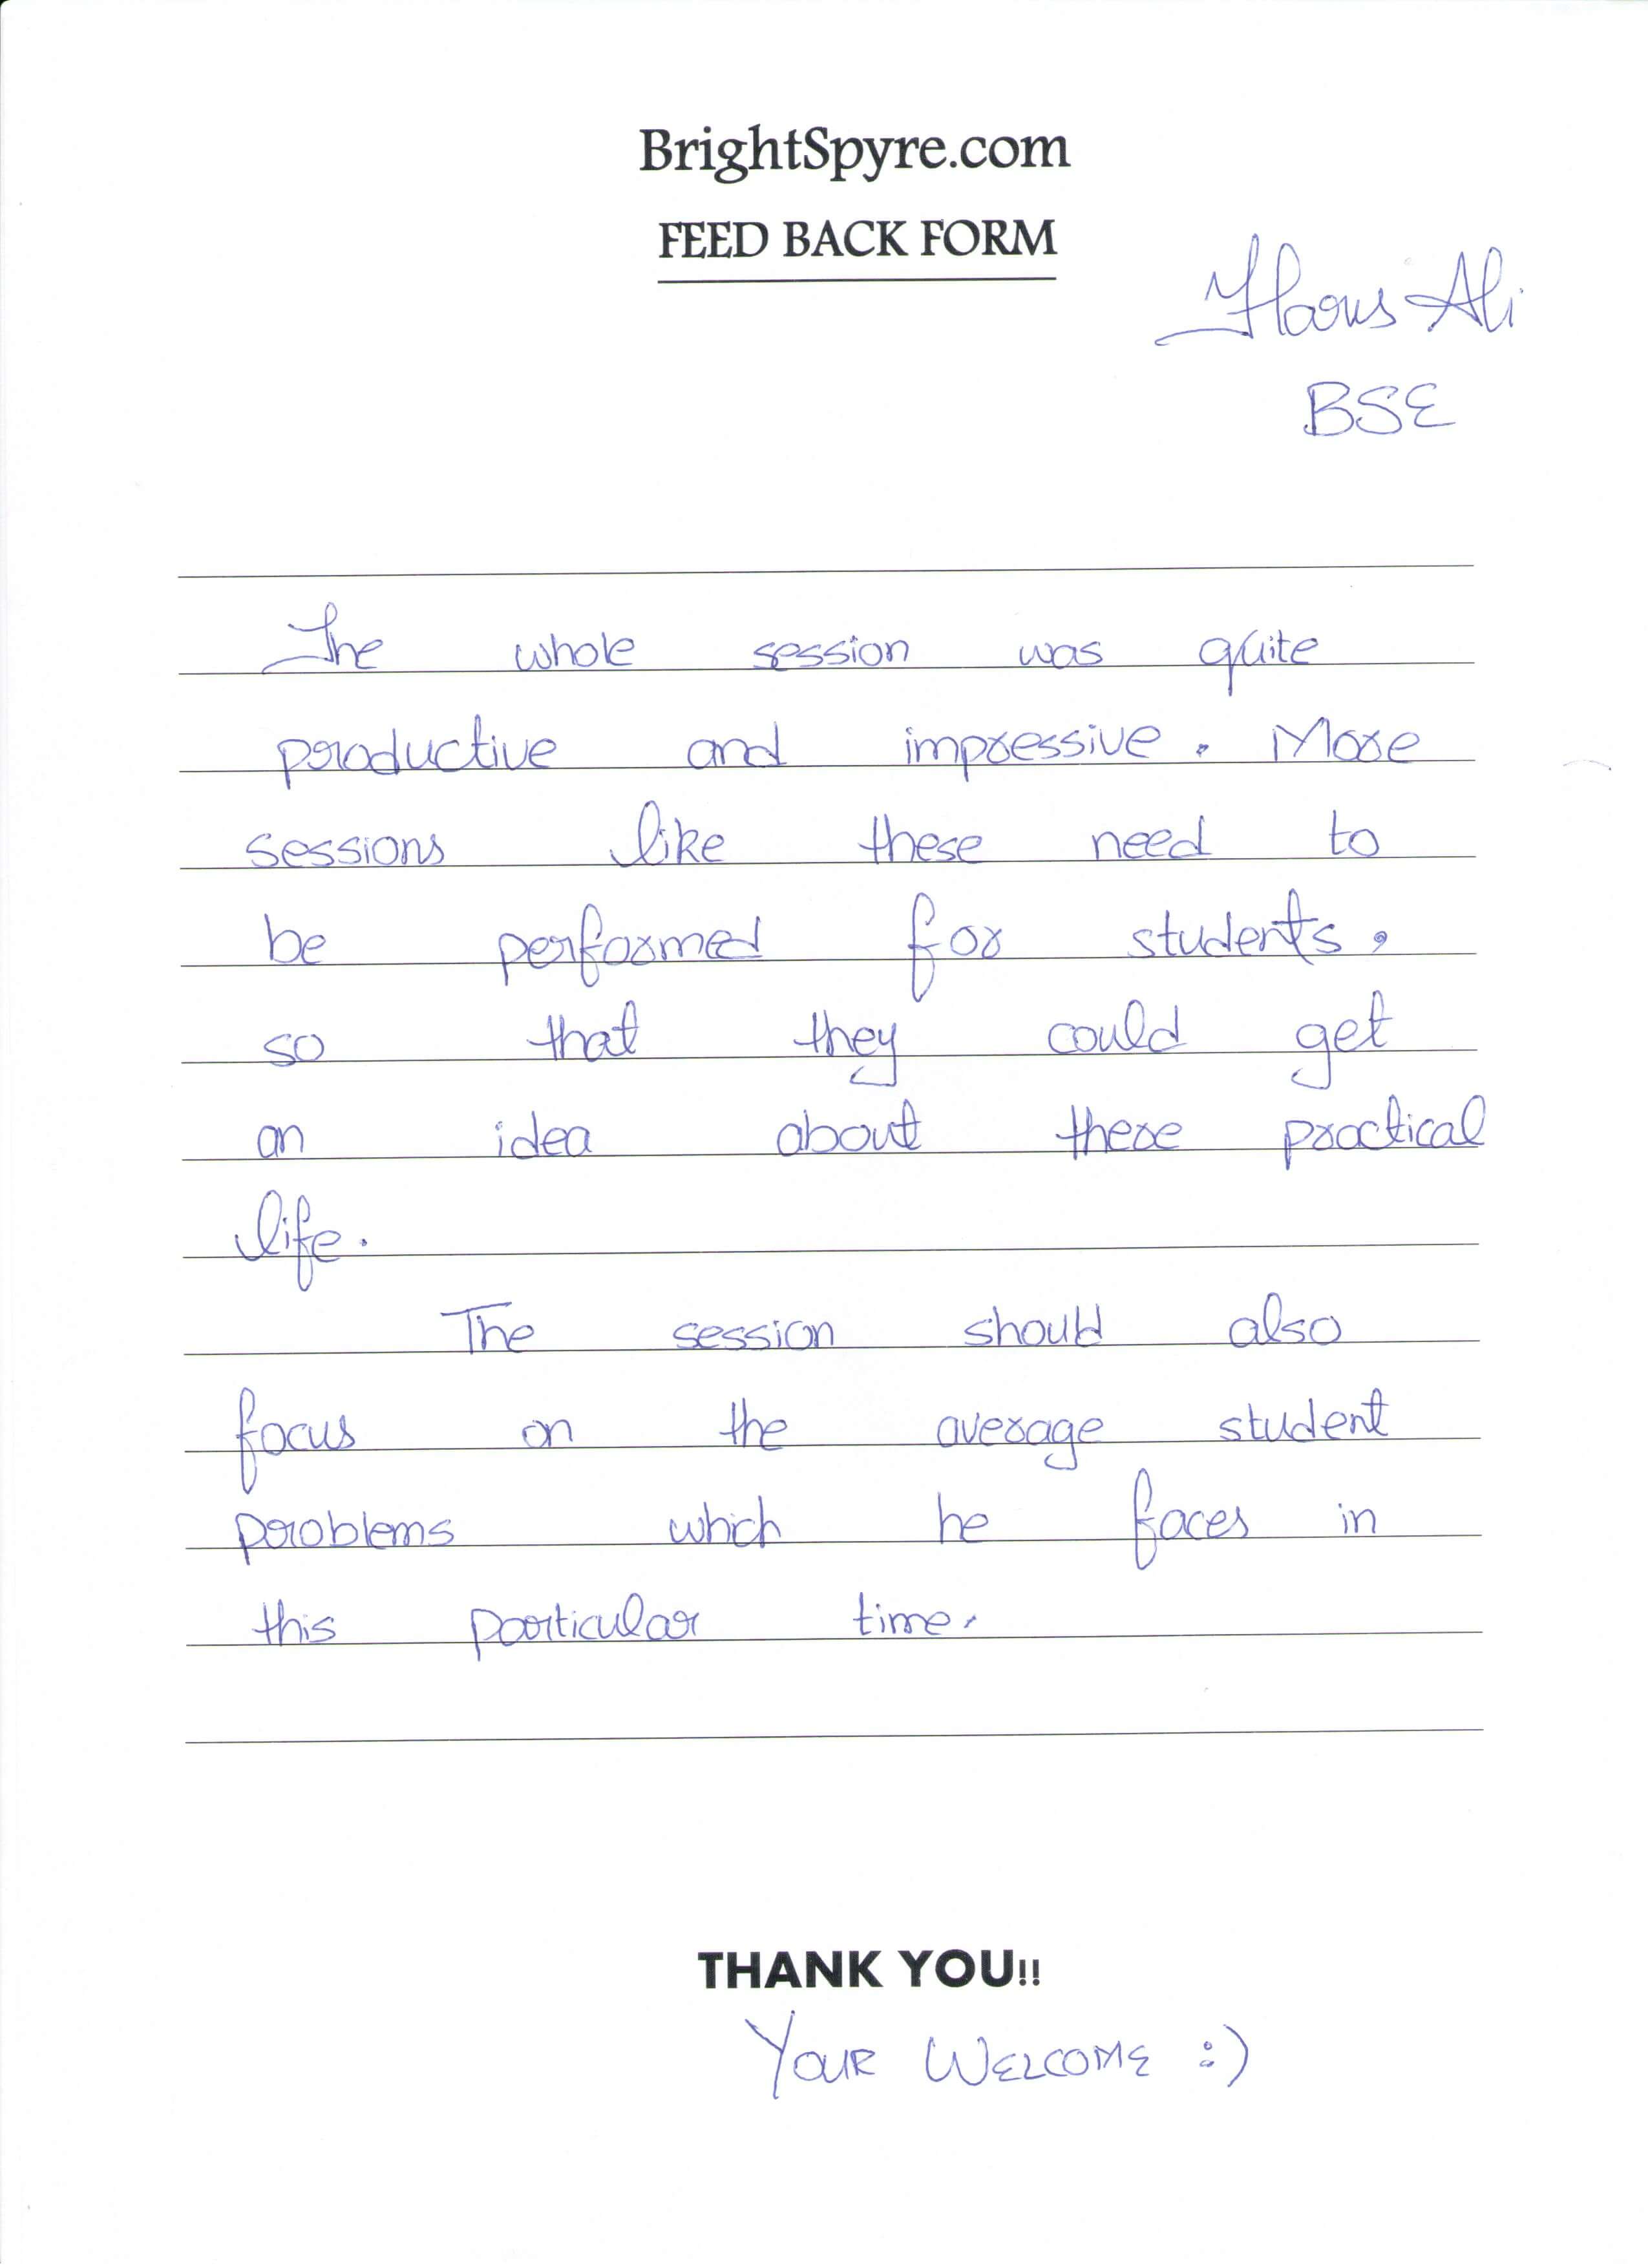 BrightSpyre.com
FEED BACK FORM
Haris Ali
BSE
The whole session was quite
productive and impressive. More
sessions like these need to
be performed for students,
so that they could get
an idea about there practical
life.
The session should also
focus on the average student
problems which he faces in
this particular time.
THANK YOU!!
YOUR WELCOME :)